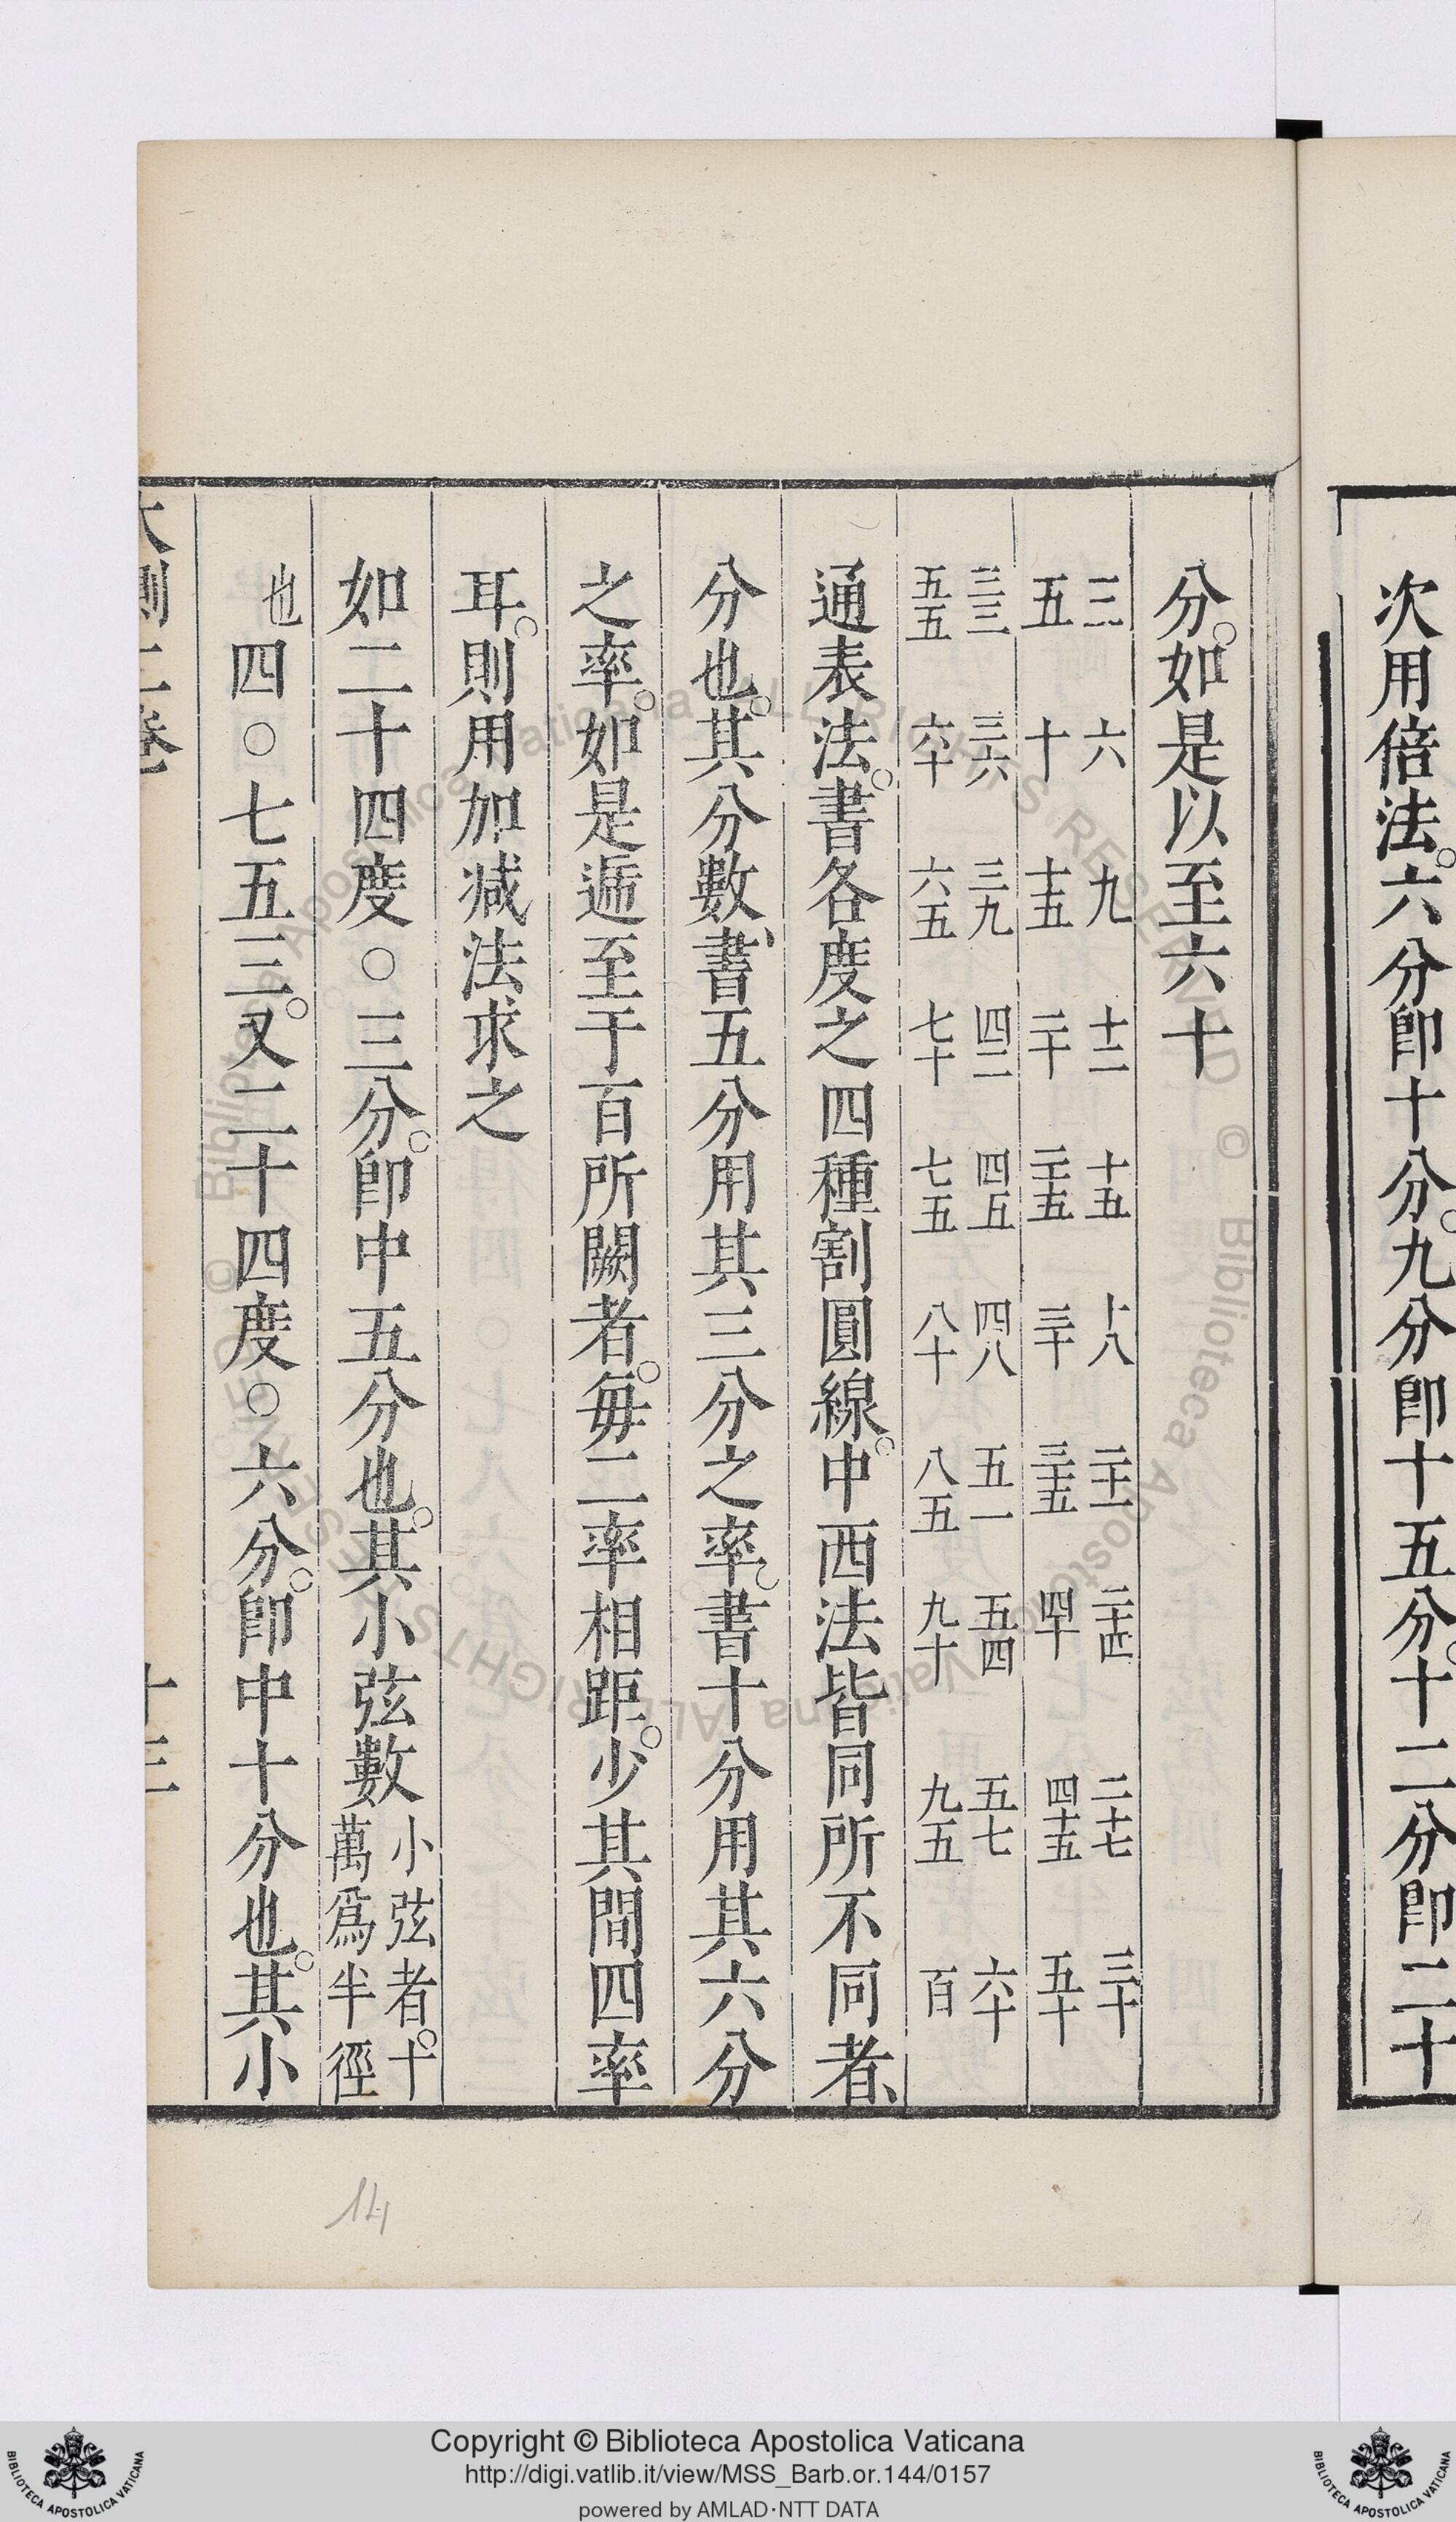 次用倍法。六分卽十分。九分卽十五分。十二分卽二十
分。如是以至六十
三 六 九 十二 十五 十八 二十一 二十四 二十七 三十
五 十 十五 二十 二十五 三十 三十五 四十 四十五 五十
三三 三六 三九 四二 四五 四八 五一 五四 五七 六十
五五 六十 六五 七十 七五 八十 八五 九十 九五 百
通表法。書各度之四種割圓線。中西法皆同所不同者、
分也。其分數、書五分用其三分之率。書十分用其六分
之率。如是遞至于百所闕者。每二率相距。少其間四率
耳。則用加减法求之
如二十四度〇三分。卽中五分也。其小弦數小弦者。十
萬爲半徑
也四〇七五三。又二十四度〇六分。卽中十分也。其小
大測二卷
十三
14
Copyright © Biblioteca Apostolica Vaticana
http://digi.vatlib.it/view/MSS_Barb.or.144/0157
powered by AMLAD·NTT DATA
BIBLIOTECA APOSTOLICA VATICANA
BIBLIOTECA APOSTOLICA VATICANA